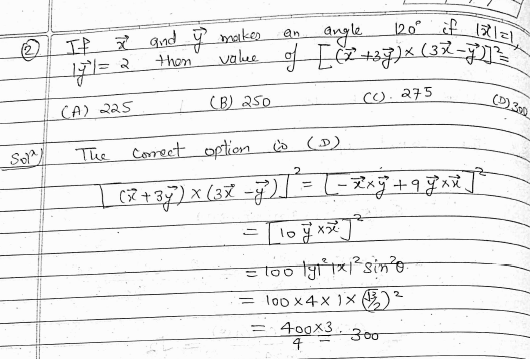 ② If x⃗ and y⃗ makes an angle 120° if |x⃗|=1,
|y⃗|= 2 then value of [(x⃗+3y⃗)×(3x⃗-y⃗)]²=
(A) 225 (B) 250 (C). 275 (D) 300
Solⁿ) The correct option is (D)
[(x⃗+3y⃗)×(3x⃗-y⃗)]² = [-x⃗×y⃗+9y⃗×x⃗]²
= [10 y⃗×x⃗]²
= 100 |y|²|x|² sin²θ
= 100×4×1×(√3/2)²
= 400×3/4 = 300